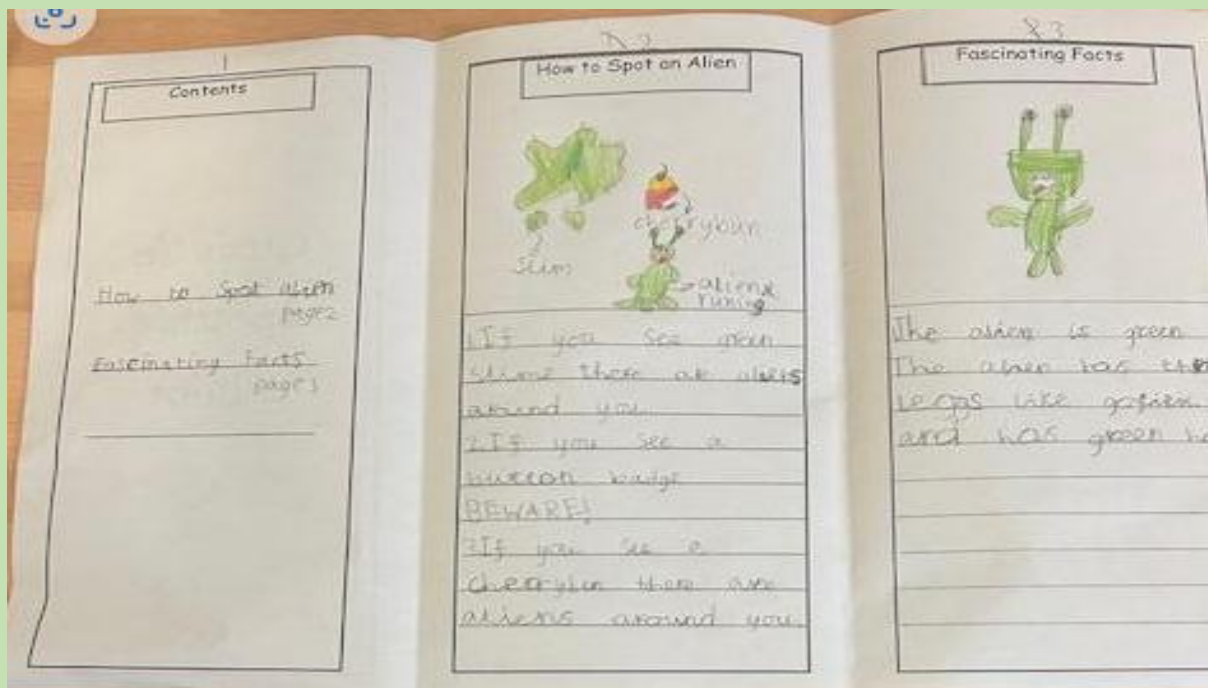 1
Contents
How to Spot alien
page 2
Fascinating Facts
page 3
P 2
How to Spot an Alien
slim
cherrybun
alien
runing
1If you see green
slime there are aliens
around you
2.If you see a
button badge
BEWARE!
3If you see a
cherrybun there are
aliens around you.
P 3
Fascinating Facts
The alien is green
The alien has
Legas like
and has green